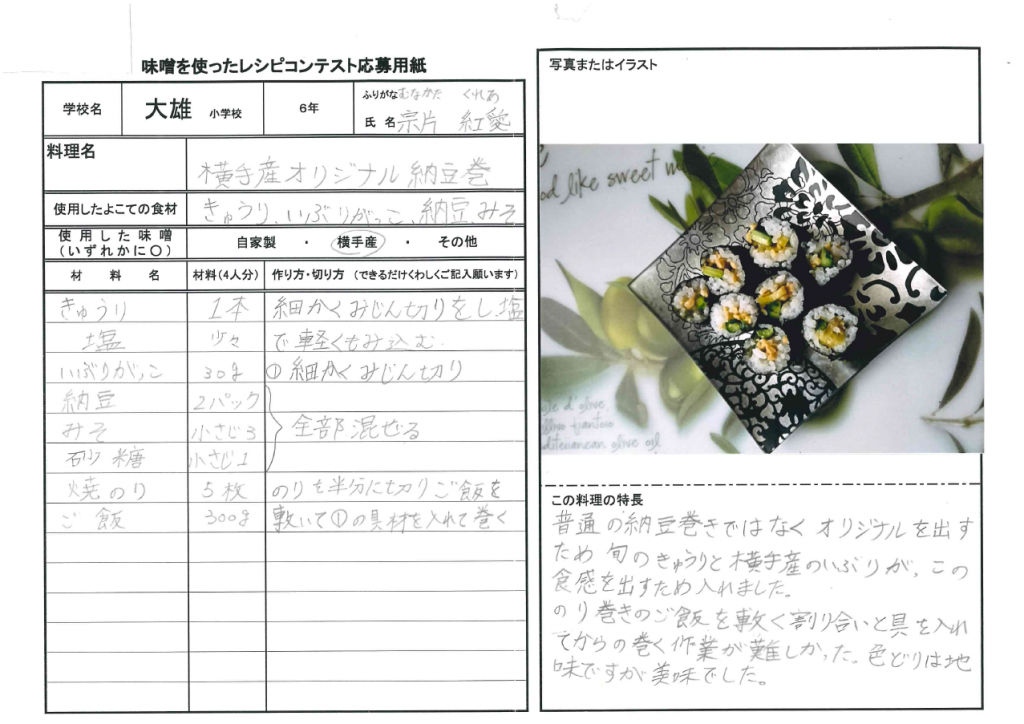 味噌を使ったレシピコンテスト応募用紙
学校名 大雄 小学校 6年 ふりがな むなかた くれあ
氏 名 宗片 紅愛
料理名 横手産オリジナル納豆巻
使用したよこての食材 きゅうり、いぶりがっこ、納豆、みそ
使用した味噌(いずれかに○) 自家製 ・ 横手産 ・ その他
材 料 名 材料(4人分) 作り方・切り方 (できるだけくわしくご記入願います)
きゅうり 1本 細かくみじん切りをし、塩
塩 少々 で軽くもみ込む
いぶりがっこ 30g ①細かくみじん切り
納豆 2パック
みそ 小さじ3 全部混ぜる
砂糖 小さじ1
焼のり 5枚 のりを半分に切りご飯を
ご飯 300g 敷いて①の具材を入れて巻く
写真またはイラスト
od like sweet m
ole d'olive
diteuanean olive oil
この料理の特長
普通の納豆巻きではなくオリジナルを出す
ため旬のきゅうりと横手産のいぶりが、この
食感を出すため入れました。
のり巻きのご飯を敷く割り合いと具を入れ
てからの巻く作業が難しかった。色どりは地
味ですが美味でした。